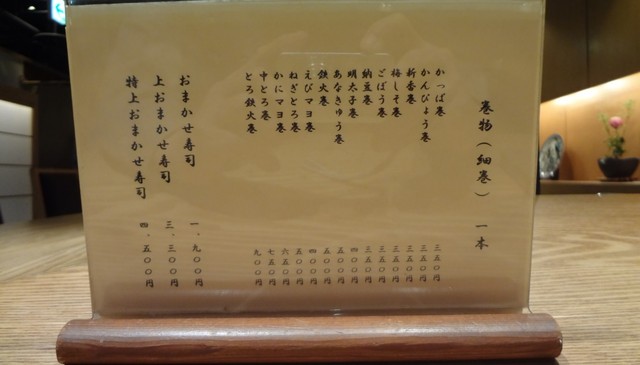 巻物(細巻) 一本
かっぱ巻 三五〇円
かんぴょう巻 三五〇円
新香巻 三五〇円
梅しそ巻 三五〇円
ごぼう巻 三五〇円
納豆巻 三五〇円
明太子巻 四〇〇円
あなきゅう巻 五〇〇円
鉄火巻 五〇〇円
えびマヨ巻 四〇〇円
ねぎとろ巻 五〇〇円
かにマヨ巻 六五〇円
中とろ巻 七五〇円
とろ鉄火巻 九〇〇円
おまかせ寿司 一、九〇〇円
上おまかせ寿司 三、三〇〇円
特上おまかせ寿司 四、五〇〇円